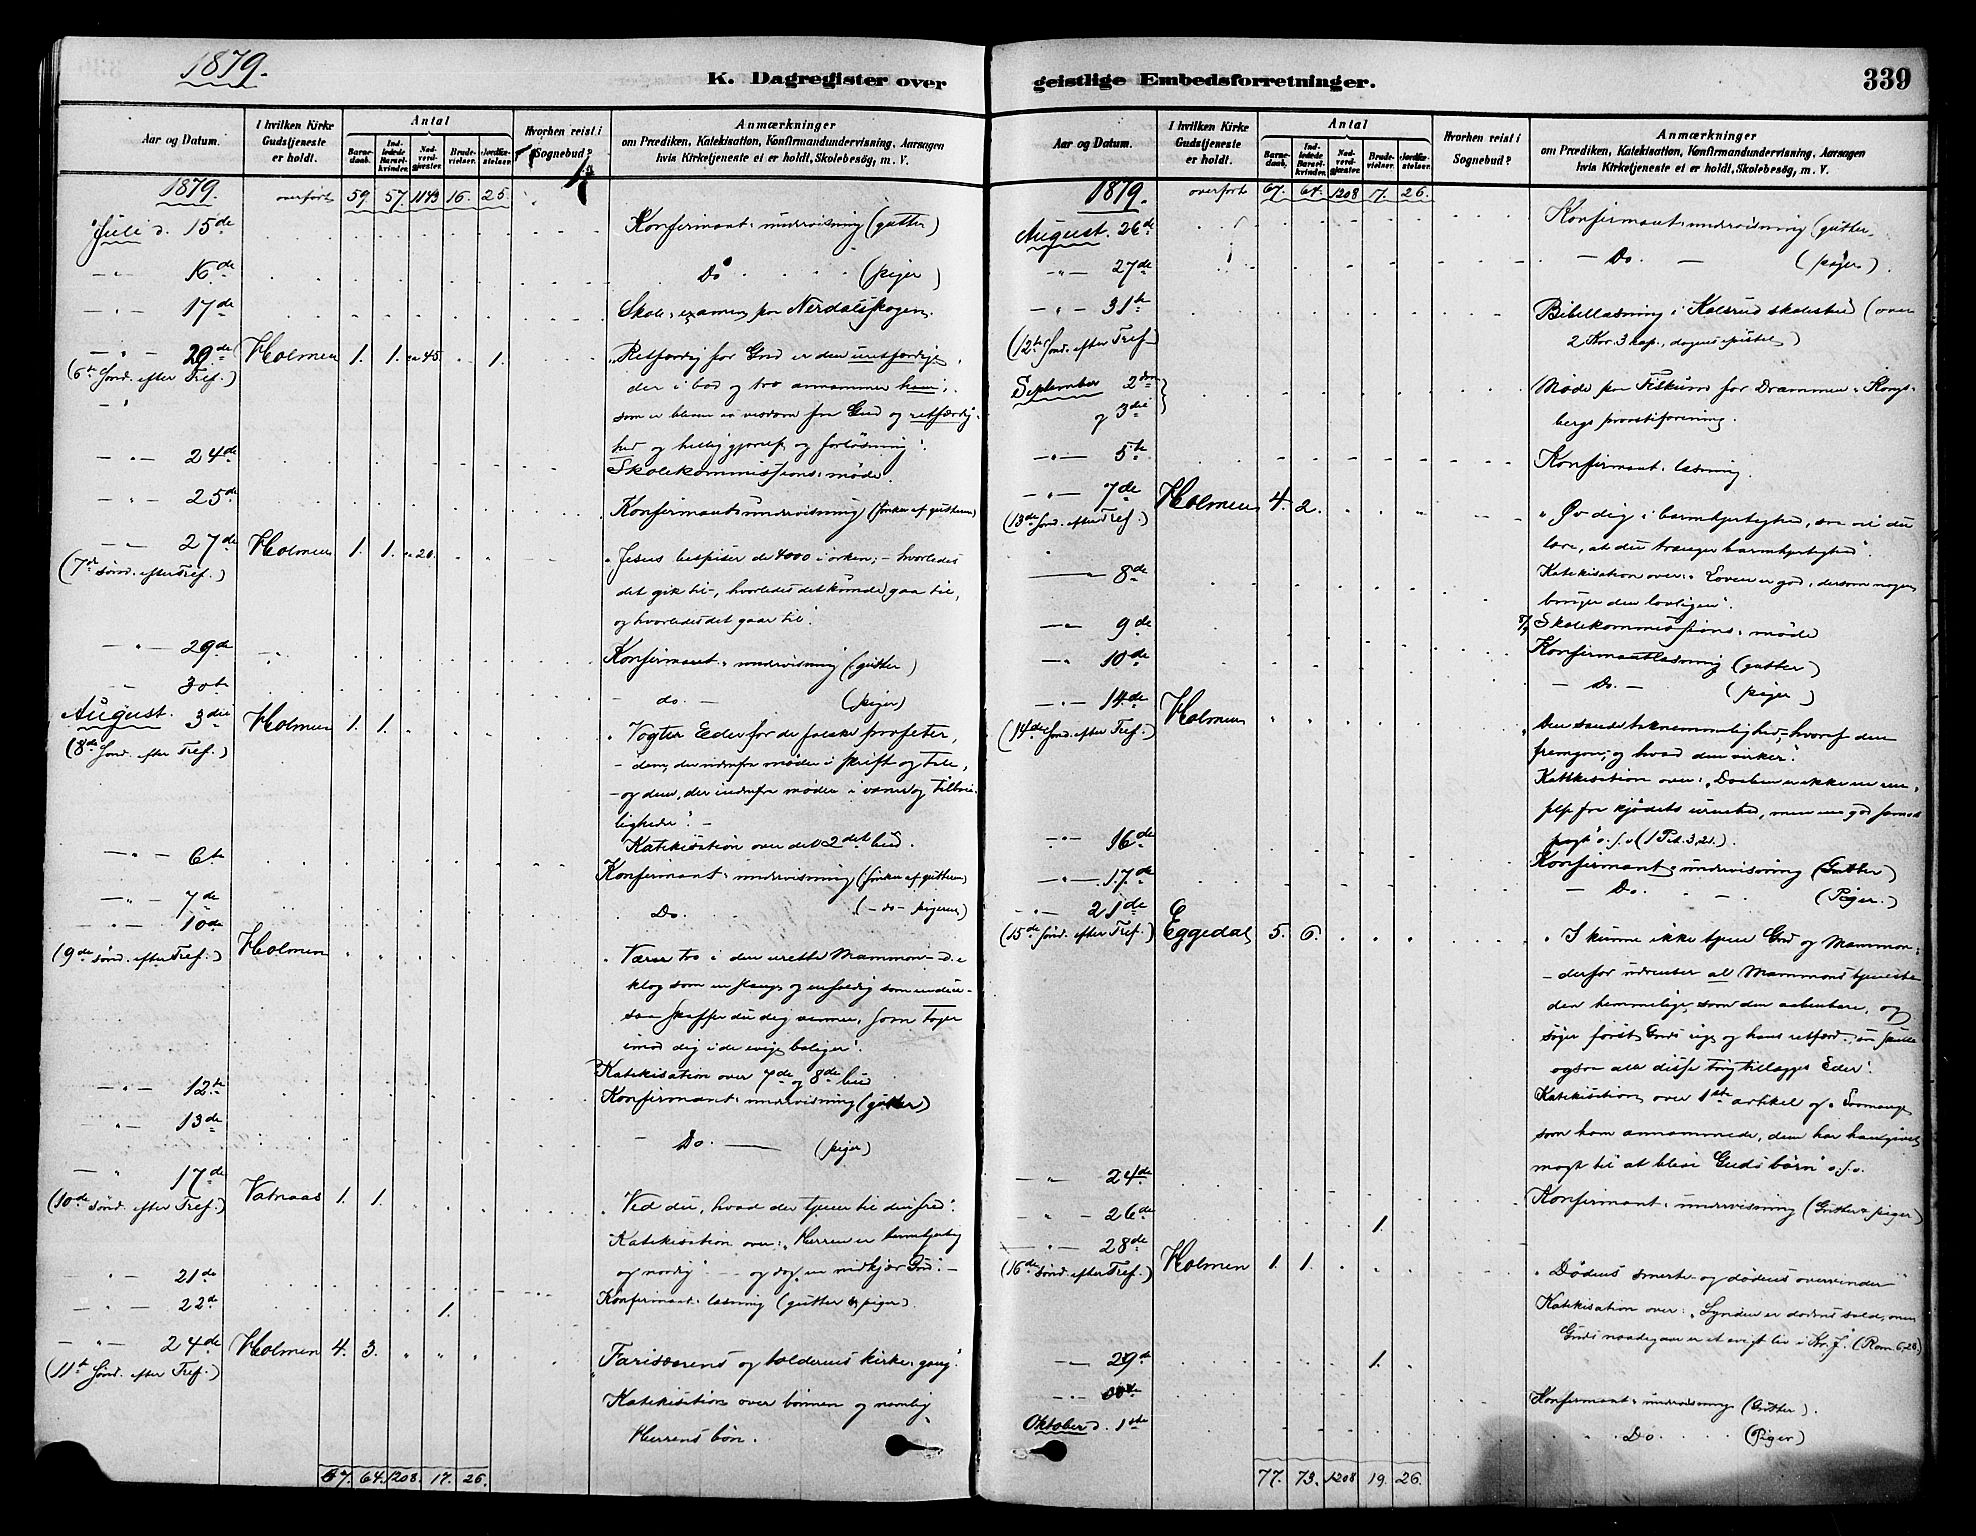 1879.
K. Dagregister over
geistlige Embedsforretninger.
339
Aar og Datum.
I hvilken Kirke Gudstjeneste er holdt.
Antal
Barnedaab.
Indledede Barselkvinder.
Nadverdgjæster.
Brudevielser.
Jordfæstelser.
Hvorhen reist i Sognebud?
Anmærkninger
om Prædiken, Katekisation, Konfirmandundervisning, Aarsagen
hvis Kirketjeneste ei er holdt, Skolebesøg, m. V.
1879. overført 59. 57. 1143 16. 25.
Juli d. 15de Konfirmant-undervisning (gutter)
16de Do (piger)
17de Skole-examen paa Nerdalsskogen.
20de Holmen 1. 1. 45. 1. "Retfærdig for Gud er den uretfærdige,
(6te Sønd. efter Tref.) der i bod og tro annammer ham,
som er bleven os visdom fra Gud og retfærdig-
hed og helliggjørelse og forløsning".
24de Skolekommissions-møde.
25de Konfirmantundervisning (finker af gutterne)
27de Holmen 1. 1. 20. "Jesus bespiser de 4000 i ørken; - hvorledes
(7de sønd. efter Tref.) det gik til, hvorledes det kunde gaa til,
og hvorledes det gaar til".
29de Konfirmant-undervisning (gutter)
30te do. (piger)
August. 3die Holmen 1. 1. "Vogter Eder for de falske profeter,
(8de Sønd. efter Tref.) - dem, der udenfra møder i skrift og tale,
- og dem, der indenfra møder i vaner og tilbøie-
ligheder". -
Katekisation over det 2det bud.
6te Konfirmant-undervisning (finker af gutterne)
7de Do. (-do- pigerne)
10de Holmen "Værer tro i den urette Mammon
(9de sønd. efter Tref.) klog som en slange og enfoldig som en due -
saa skaffe du dig venner, som tager
imod dig i de evige boliger".
Katekisation over 7de og 8de bud
12te Konfirmant-undervisning (gutter)
13de Do. (piger)
17de Vatnaas 1. 1. "Ved du, hvad der tjener til din fred".
(10de sønd. efter Tref.) Katekisation over: "Herren er barmhjertig
og naadig" - og dog en nidkjær Gud". -
21de Konfirmant-læsning (gutter & piger).
22de 1.
24de Holmen 4. 3. "Farisæerens og tolderens kirke-gang".
(11te Sønd. efter Tref.) Katekisation over bønnen og navnlig
Herrens bøn.
67. 64. 1208. 17. 26.
Aar og Datum.
I hvilken Kirke Gudstjeneste er holdt.
Antal
Barnedaab.
Indledede Barselkvinder.
Nadverdgjæster.
Brudevielser.
Jordfæstelser.
Hvorhen reist i Sognebud?
Anmærkninger
om Prædiken, Katekisation, Konfirmandundervisning, Aarsagen
hvis Kirketjeneste ei er holdt, Skolebesøg, m. V.
1879. overført 67. 64. 1208 17. 26.
August. 26de Konfirmant-undervisning (gutter)
27de Do. (piger).
31te Bibellæsning i Kolsrud skolested (over
(12te Sønd. efter Tref.) 2 Kor. 3 kap., dagens epistel)
September 2den Møde paa Fiskum for Drammen-Kongs-
og 3die bergs provstiforening.
5te Konfirmant-læsning.
7de Holmen 4. 2. "Øv dig i barmhjertighed, saa vil du
(13de Sønd. efter Tref.) lære, at du trænger barmhjertighed".
Katekisation over: "Loven er god, dersom nogen
bruger den lovligen".
8de 8/9 Skolekommissions-møde
9de Konfirmantlæsning (gutter)
10de Do. (piger)
14de Holmen "Den sande taknemmelighed, hvoraf den
(14de Sønd. efter Tref.) fremgaar, og hvad den virker".
Katekisation over: "Daaben er ikke en
for kjødets urenhed, men en god samvittigheds
pagt" o. s. v (1 Pet. 3, 21.).
16de Konfirmant-undervisning (Gutter)
17de Do. (Piger.)
21de Eggedal 5. 6. "I kunne ikke tjene Gud og Mammon -
(15de Sønd. efter Tref.) - derfor udrenser al Mammons tjeneste
den hemmelige, som den aabenbare, og
søger først Guds rige og hans retfærd.,
ogsaa alle disse ting tillægges Eder".
Katekisation over 1ste artikel og "Saamange
som ham annammede, dem har han givet
magt til at blive Guds børn" o. s. v.
24de Konfirmant-undervisning (Gutter & piger)
26de 1.
28de Holmen 1. 1. "Dødens smerte og dødens overvinder"
(16de sønd. efter Tref.) Katekisation over: "Synden er dødens sold, men
Guds naadegave er et evigt liv i Kr. J." (Rom. 6,23.)
29de 1.
30te Konfirmant-undervisning (Gutter).
Oktober d. 1ste Do (Piger)
77. 73. 1208 19. 26.